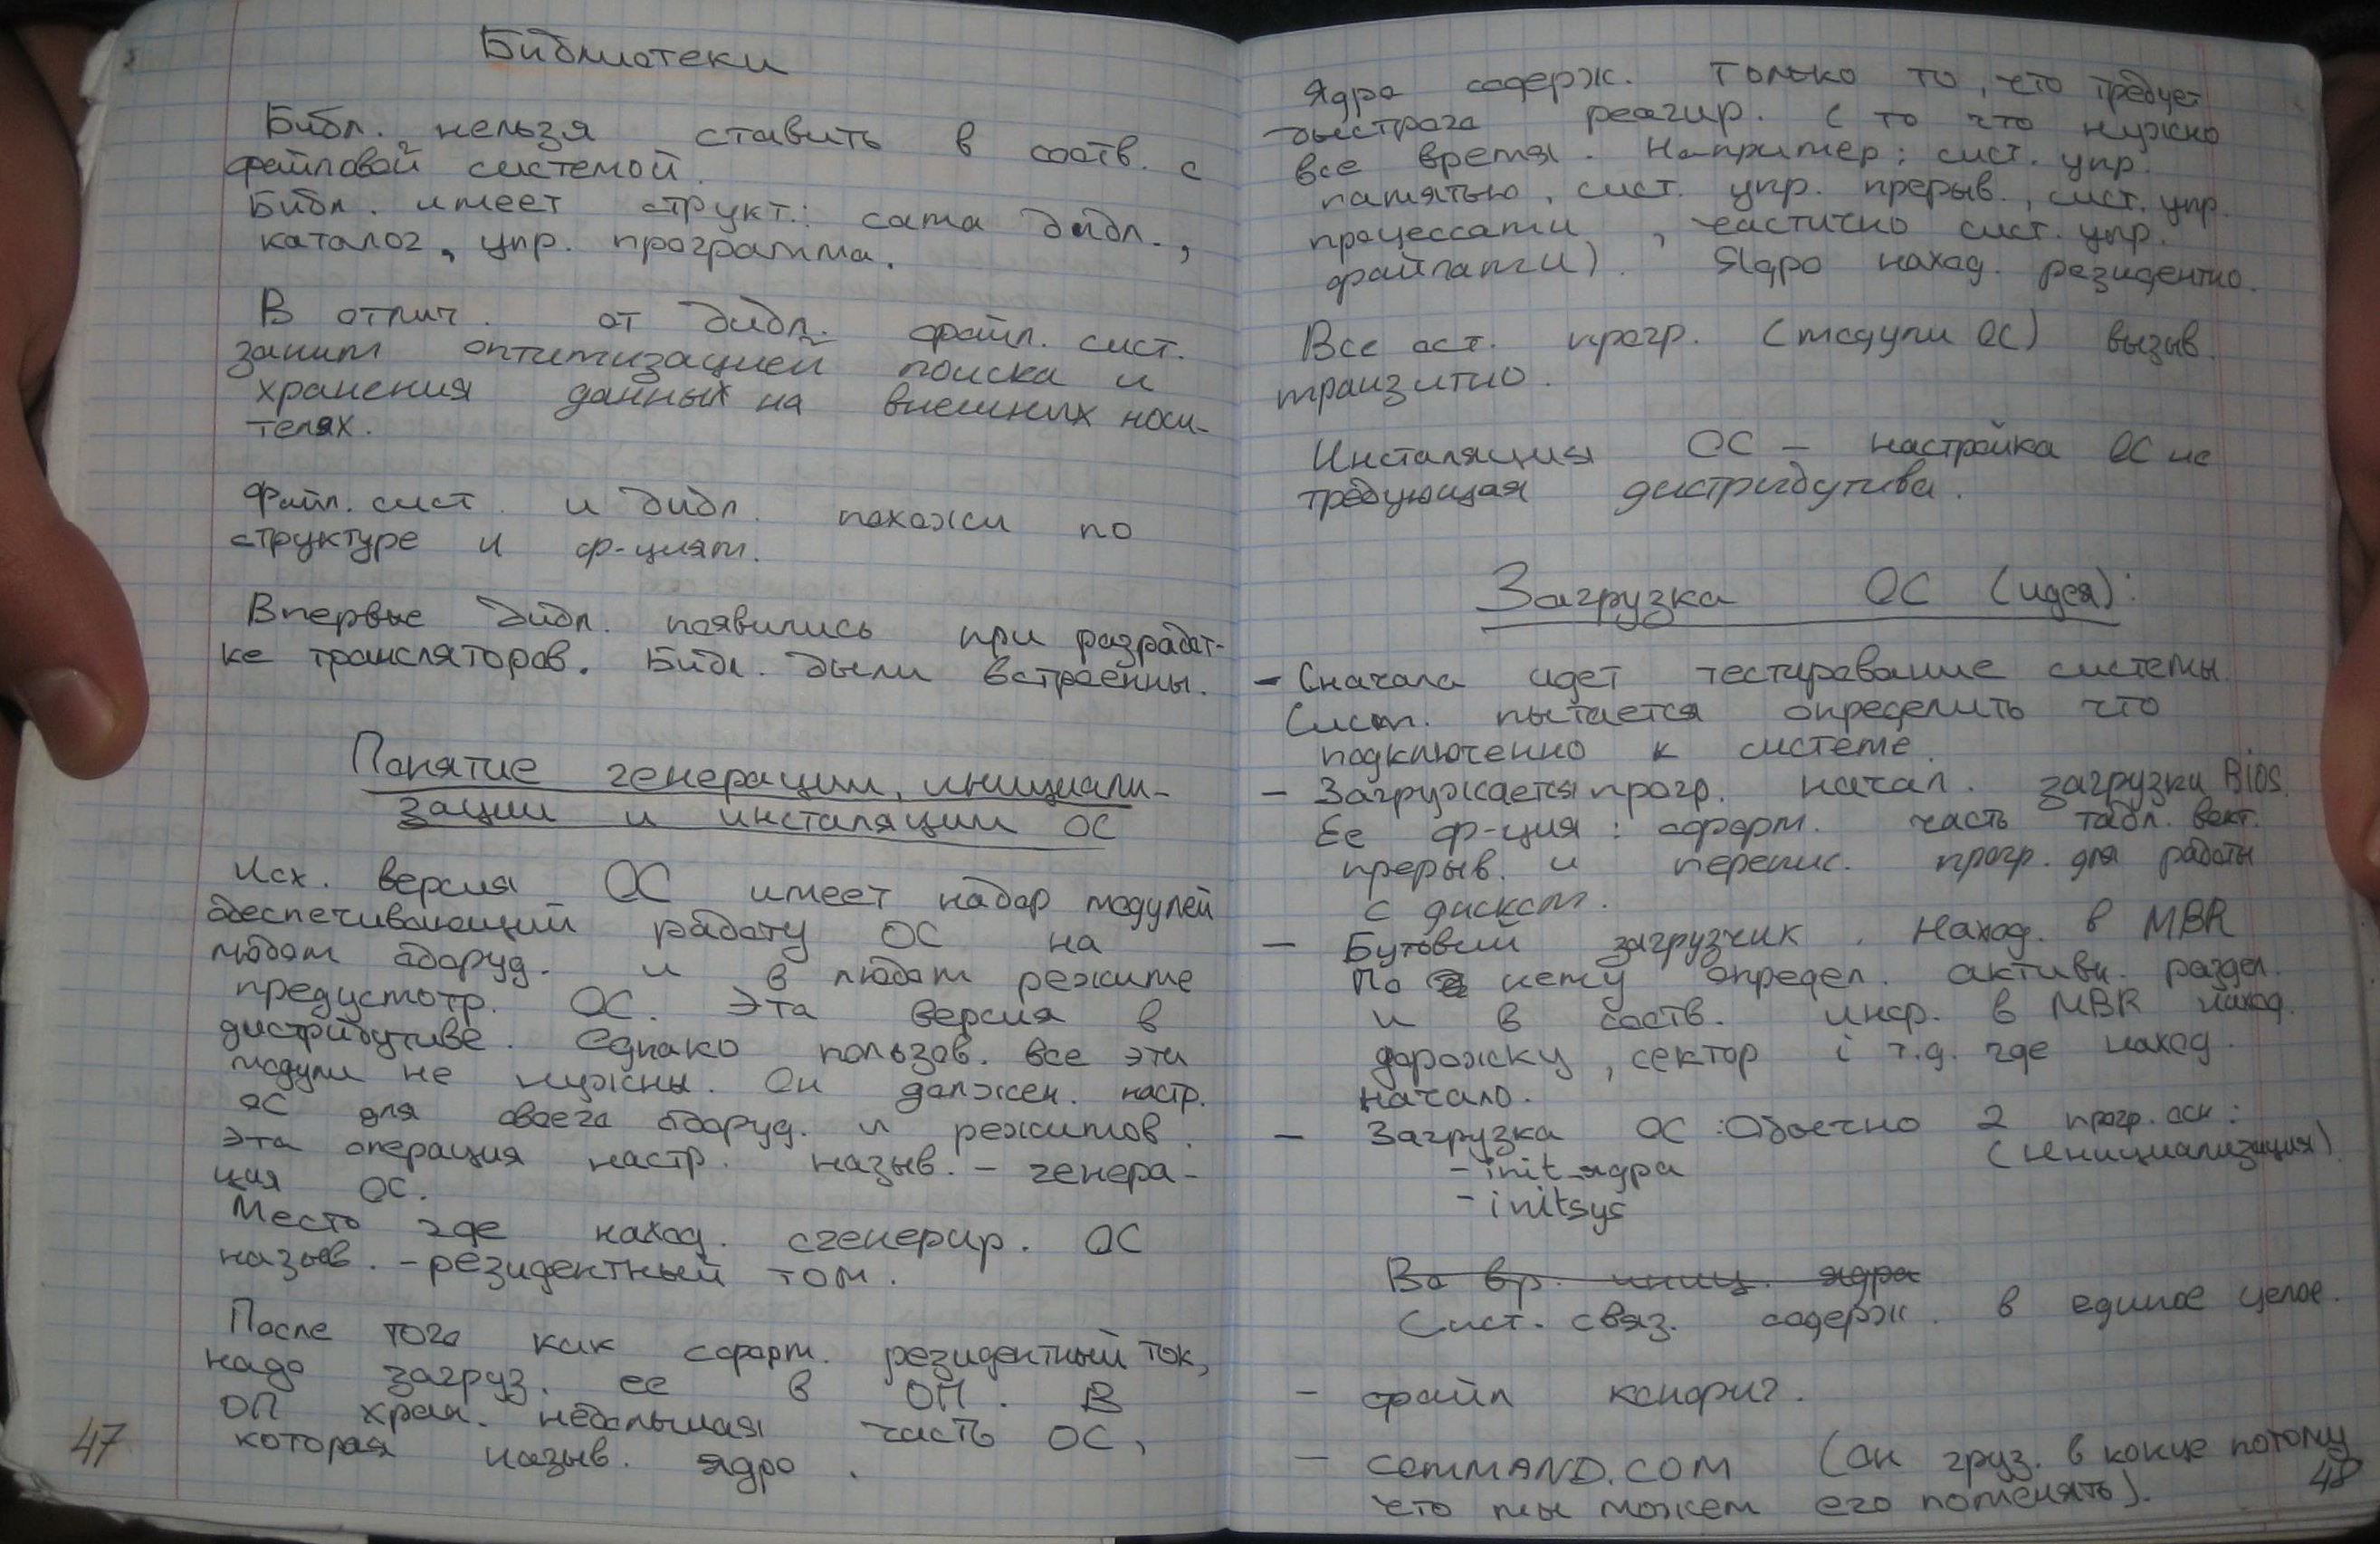 Библиотеки
Библ. нельзя ставить в соотв. с
файловой системой.
Библ. имеет структ.: сама библ.,
каталог, упр. программа.
В отлич. от библ. файл. сист.
заним оптимизацией поиска и
хранения данных на внешних носи-
телях.
Файл. сист. и библ. похожи по
структуре и ф-циям.
Впервые библ. появились при разработ-
ке трансляторов. Библ. были встроенны.
Понятие генерации, инициали-
зации и инсталяции ОС
Исх. версия ОС имеет набор модулей
обеспечивающий работу ОС на
любом оборуд. и в любом режиме
предусмотр. ОС. Эта версия в
дистрибутиве. Однако пользов. все эти
модули не нужны. Он должен. настр.
ОС для своего оборуд. и режимов.
Эта операция настр. назыв. - генера-
ция ОС.
Место где наход. сгенерир. ОС
назыв. - резидентный том.
После того как сформ. резидентный ток,
надо загруз. ее в ОП. В
ОП хран. небольшая часть ОС,
которая назыв. ядро.
47
Ядро содерж. только то, что требует
быстрого реагир. ( то что нужно
все время. Например: сист. упр.
памятью, сист. упр. прерыв., сист. упр.
процессами, частично сист. упр.
файлами). Ядро наход. резидентно.
Все ост. прогр. (модули ОС) вызыв.
транзитно.
Инсталяция ОС - настройка ОС не
требующая дистрибутива.
Загрузка ОС (идея):
- Сначала идет тестирование системы.
Сист. пытается определить что
подключенно к системе.
- Загружается прогр. начал. загрузки Bios.
Ее ф-ция: сформ. часть табл. вект.
прерыв. и перепис. прогр. для работы
с диском.
- Бутовый загрузчик. Наход. в MBR
По нему определ. активн. раздел.
и в соотв. инф. в MBR наход.
дорожку, сектор і т.д. где наход.
начало.
- Загрузка ОС: Обычно 2 прогр. осн:
(инициализация)
- init_ядра
- initsys
Во вр. иниц. ядра
Сист. связ. содерж. в единое целое.
- файл конфиг.
- COMMAND.COM (он груз. в конце потому
что мы можем его поменять).
48